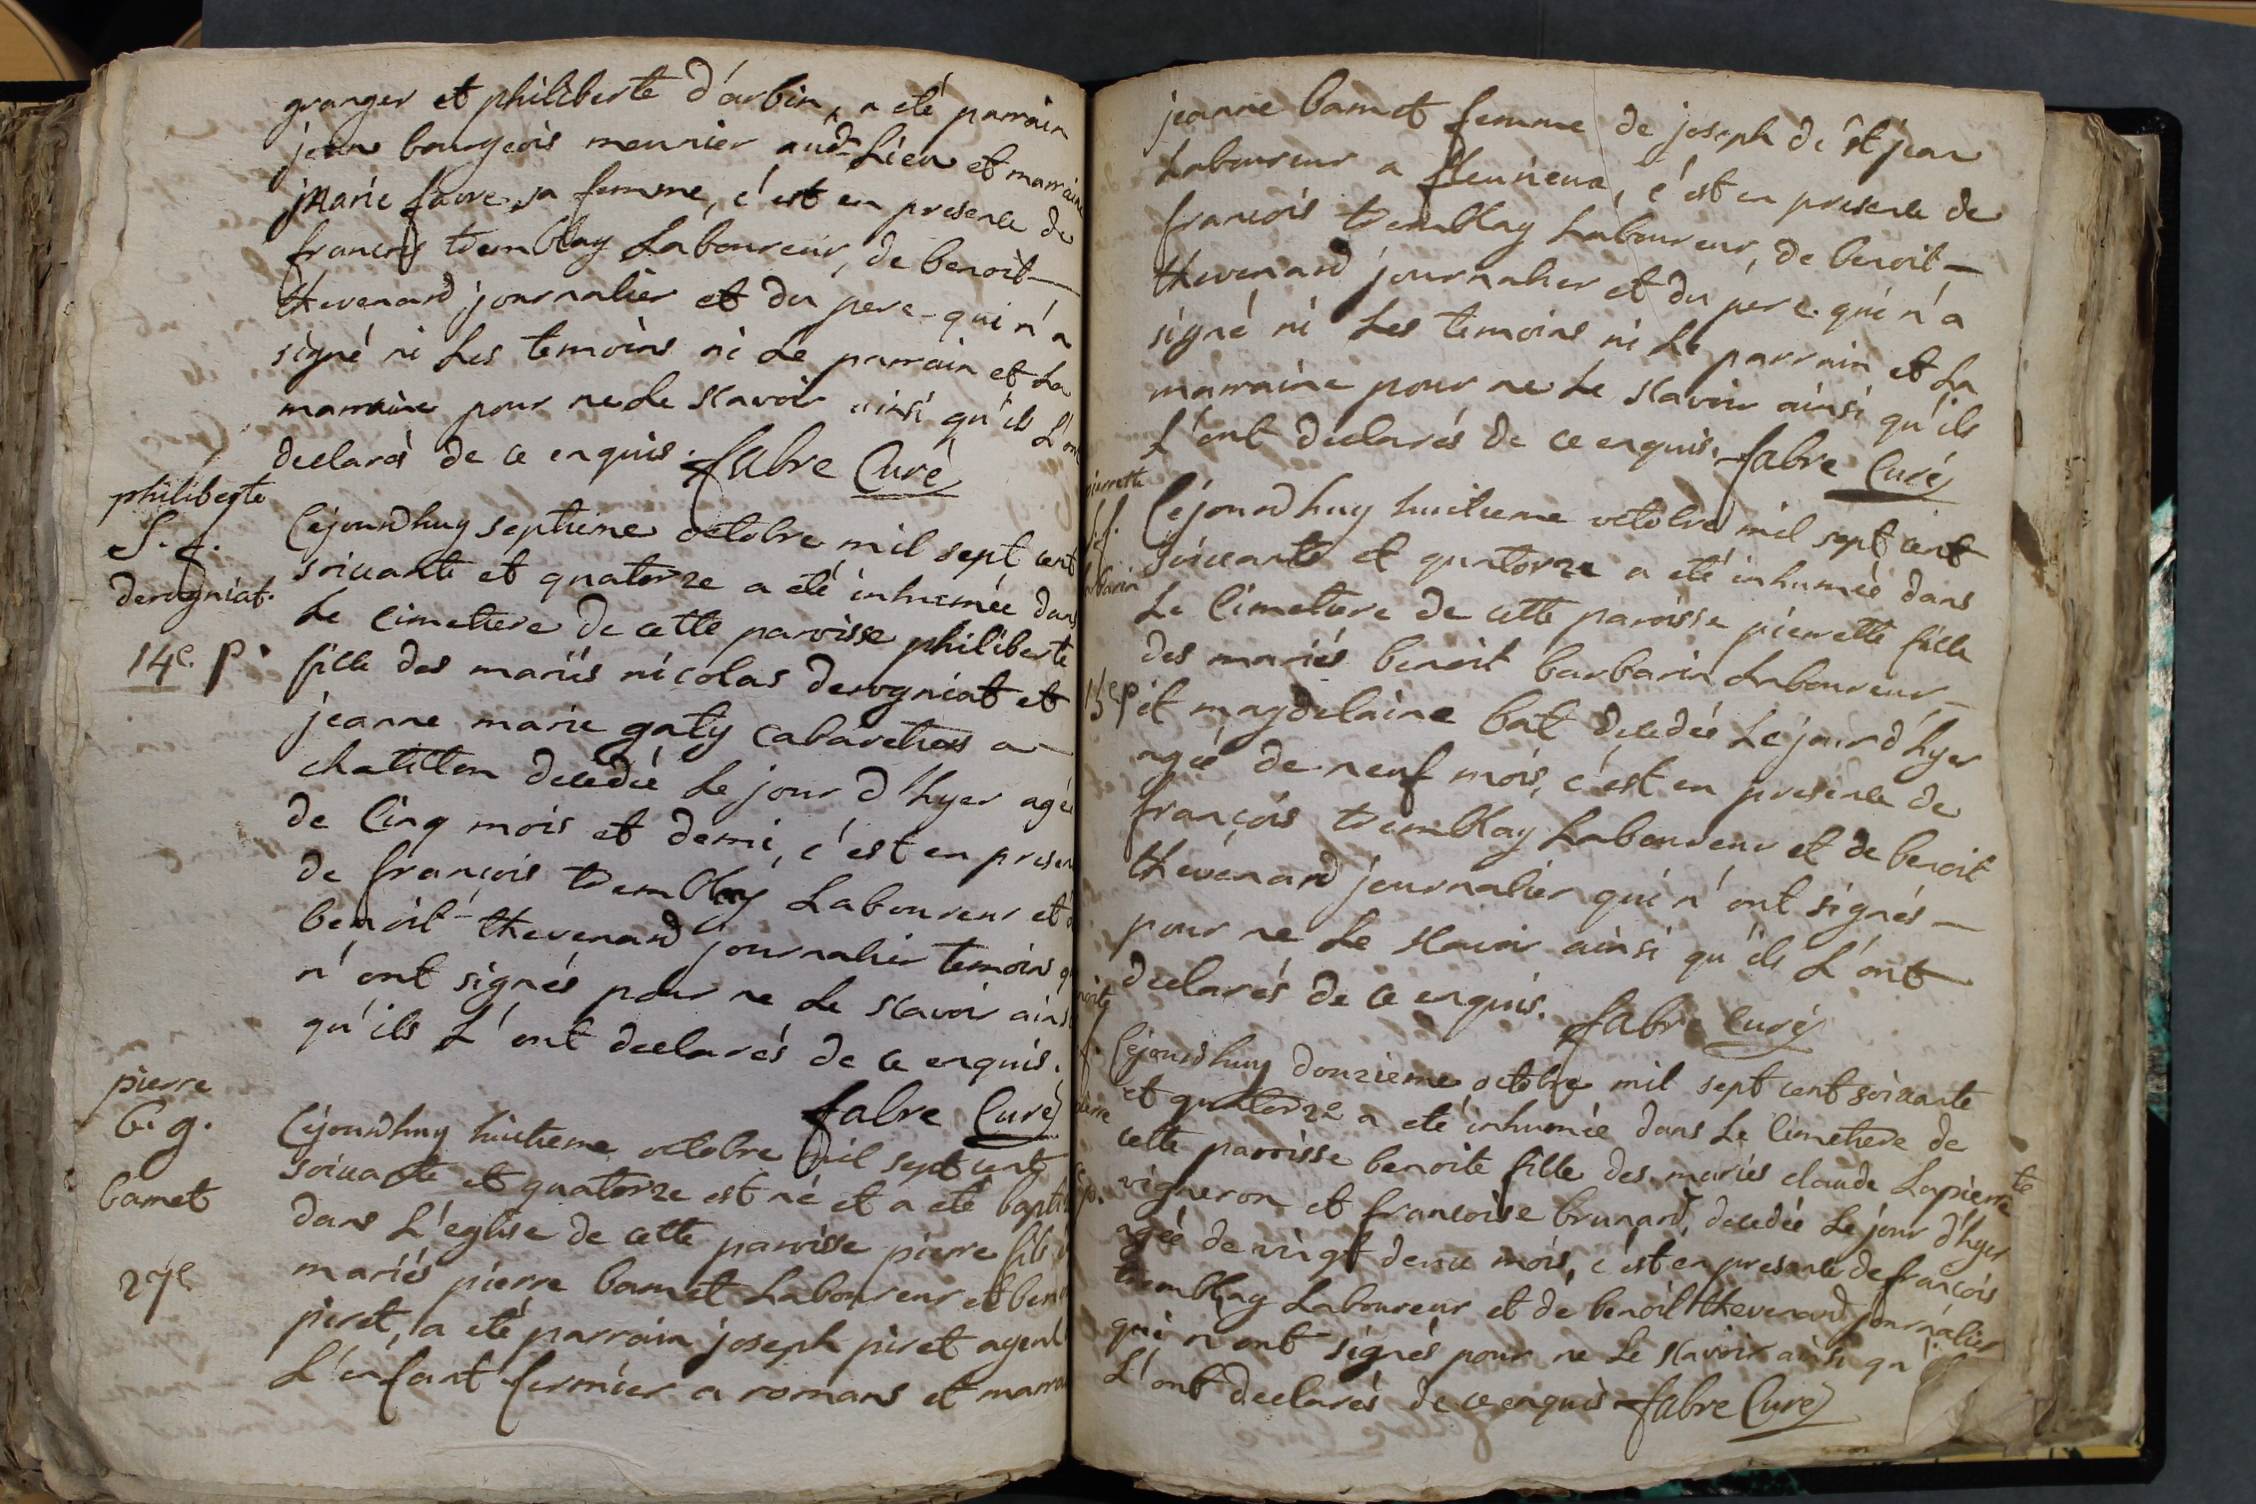 granger et philiberte d'arbin, a eté parrain
jean bourgeois meunier aud. Lieu et marraine
Marie favre sa femme, c'est en presence de
françois tremblay Laboureur, de benoit
thevenard journalier et du pere qui n'a
signé ni Les temoins ni Le parrain et La
marraine pour ne Le scavoir ainsi qu'ils L'ont
declarés de ce enquis. fabre Curé
philiberte
S. f.
derogniat.
14e. p.
Cejourdhuy septieme octobre mil sept cent
soixante et quatorze a eté inhumée dans
Le Cimetiere de cette paroisse philiberte
fille des mariés nicolas derogniat et
jeanne marie gaty cabaretiers a
chatillon decedée Le jour d'hyer agée
de Cinq mois et demi, c'est en presen
de françois tremblay Laboureur et d
benoit thevenard journalier temoins q
n'ont signés pour ne Le scavoir ains
qu'ils L'ont declarés de ce enquis.
fabre Curé
pierre
b. g.
bamet
27e
Cejourdhuy huitieme octobre mil sept cent
soixante et quatorze est né et a eté baptis
dans L'eglise de cette paroisse pierre fils d
mariés pierre bamet Laboureur et ben
piret, a eté parrain joseph piret ayeul
L'enfant fermier a romans et marra
jeanne bamet femme de joseph de st jean
Laboureur a fleurieux, c'est en presence de
françois tremblay Laboureur, de benoit
thevenard journalier et du pere qui n'a
signé ni Les temoins ni Le parrain et La
marraine pour ne Le scavoir ainsi qu'ils
L'ont declarés de ce enquis. fabre Curé
pierrette
S. f.
barbarin
15e p
Cejourdhuy huitieme octobre mil sept cent
soixante et quatorze a eté inhumée dans
Le Cimetiere de cette paroisse pierrette fille
des mariés benoit barbarin Laboureur
et magdelaine bat decedée Le jour d'hyer
agée de neuf mois, c'est en presence de
françois tremblay Laboureur et de benoit
thevenard journalier qui n'ont signés
pour ne Le scavoir ainsi qu'ils L'ont
declarés de ce enquis. fabre Curé
noite
f.
pierre
p.
Cejourdhuy douzieme octobre mil sept cent soixante
et quatorze a eté inhumée dans Le Cimetiere de
cette paroisse benoite fille des mariés claude Lapierre te
vigneron et françoise brunard, decedée Le jour d'hyer
agée de vingt deux mois, c'est en presence de françois
tremblay Laboureur et de benoit thevenard journalier
qui n'ont signés pour ne Le scavoir ainsi qu'i
L'ont declarés de ce enquis fabre Curé